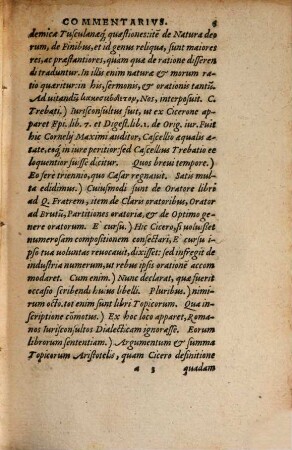 COMMENTARIVS. 6
demicæ Tusculanæq́; quæstiones: itē de Natura deo
rum, de Finibus, et id genus reliquæ, sunt maiores
res, ac præstantiores, quam qua de ratione disseren
di traduntur. In illis enim naturæ & morum ratio
quæritur: in his, sermonis, & orationis tantū.
Ad vitandū Nos, interposuit. C.
Trebati.) Iurisconsultus fuit, ut ex Cicerone ap
paret Epi. lib. 7. et Digest. lib. 1. de Orig. iur. Fuit
hic Cornelij Maximi auditor, Cascellio æqualis æ
tate, eoq́; in iure peritior: sed Cascellius Trebatio e
loquentior fuisse dicitur. Quos breui tempore.)
Eo fere triennio, quo Cæsar regnauit. Satis mul
ta edidimus.) Cuiusmodi sunt de Oratore libri
ad Q. Fratrem, item de Claris oratoribus, Orator
ad Brutū, Partitiones oratoriæ, & de Optimo ge
nere oratorum. E cursu.) Hic Cicero, si voluisset
numerosam compositionem consectari, E cursu i
pso tua voluntas reuocauit, dixisset: sed infregit de
industria numerum, ut rebus ipsis orationē accom
modaret. Cum enim.) Nunc declarat, quæ fuerit
occasio scribendi huius libelli. Pluribus.) nimi
rum octo. tot enim sunt libri Topicorum. Qua in-
scriptione cōmotus.) Ex hoc loco apparet, Roma-
nos Iurisconsultos Dialecticam ignorasse. Eorum
librorum sententiam.) Argumentum & summa
Topicorum Aristotelis, quam Cicero definitione
a 3 quadam